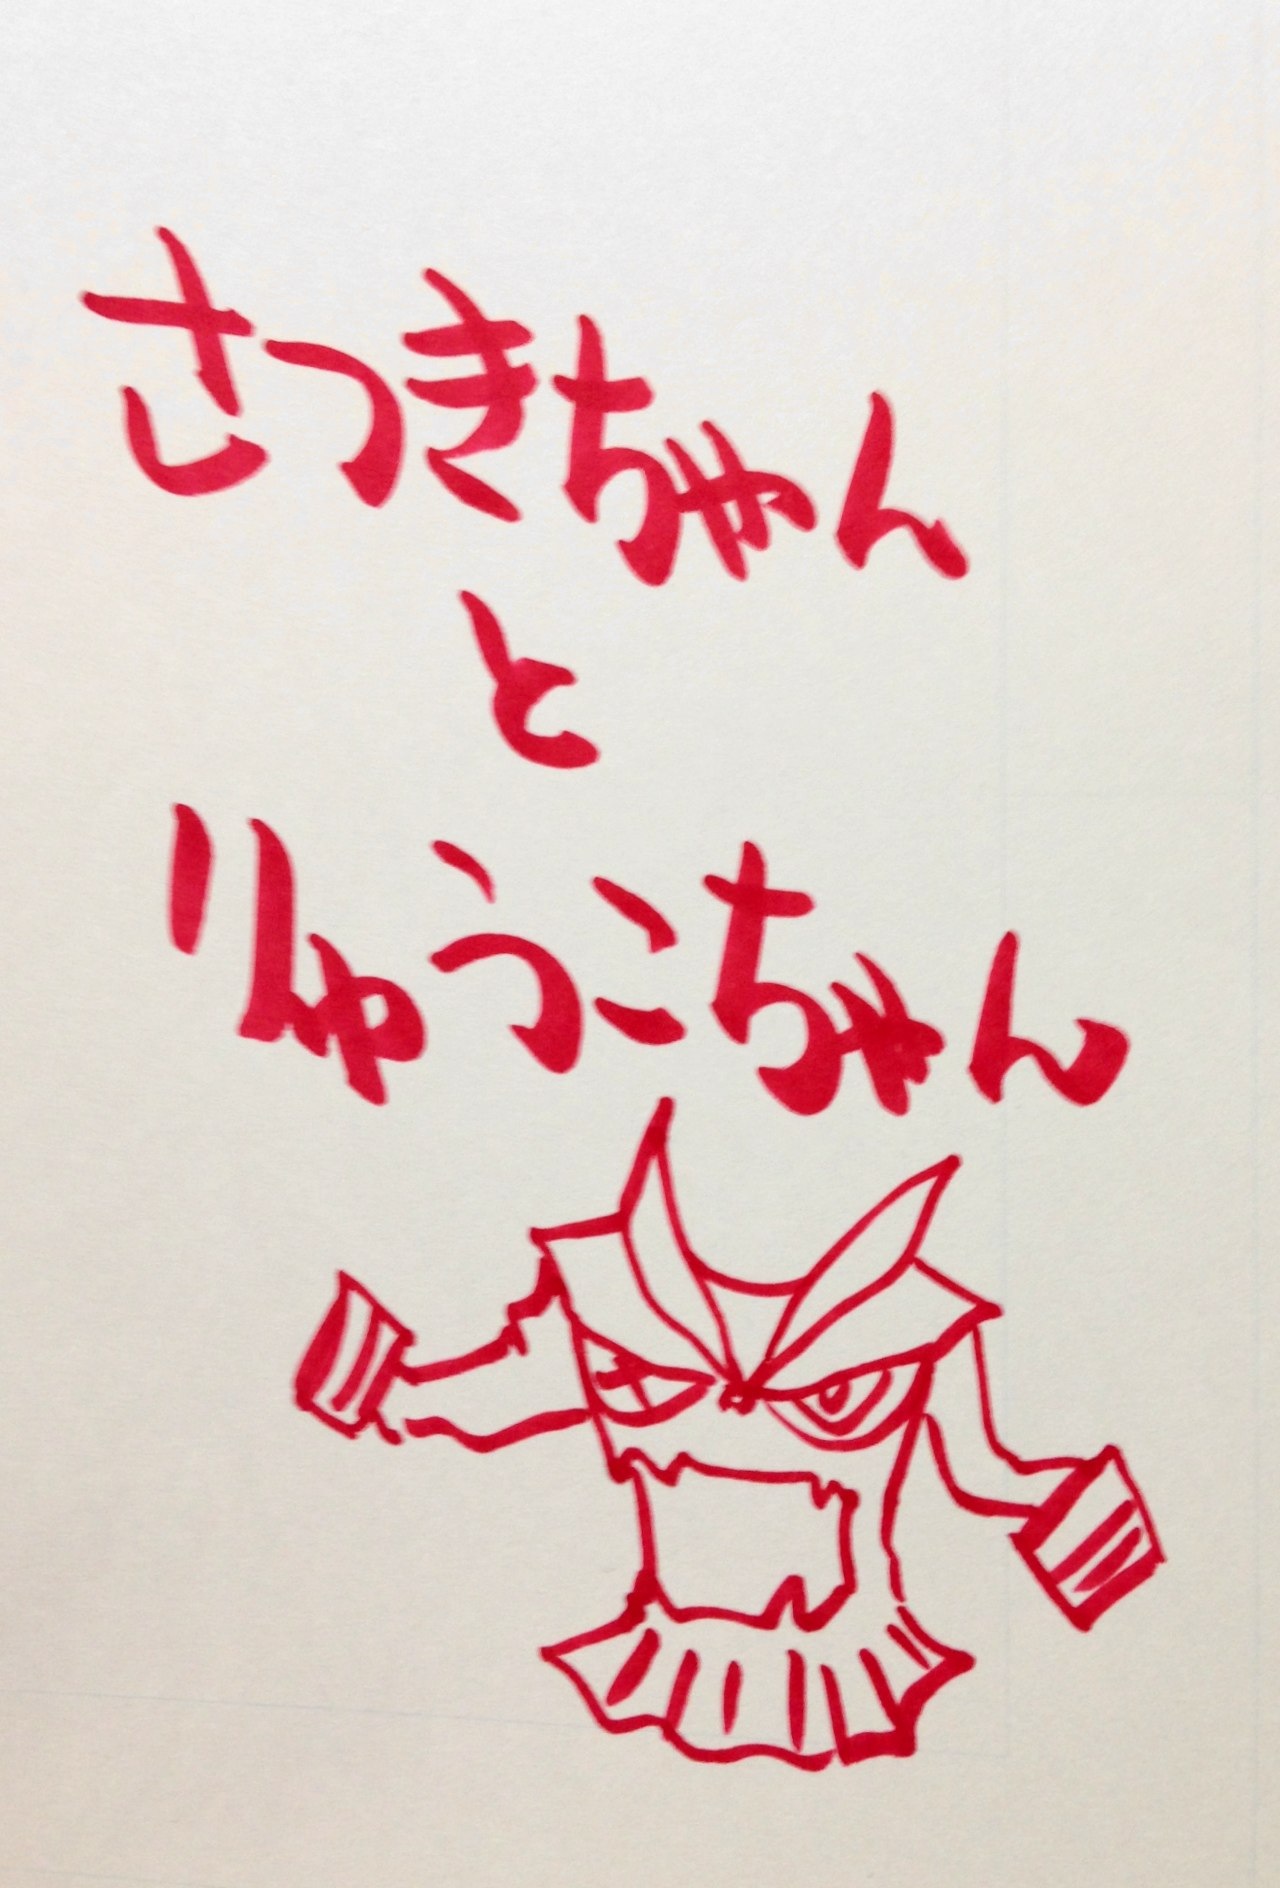 さつきちゃん
と
りゅうこちゃん